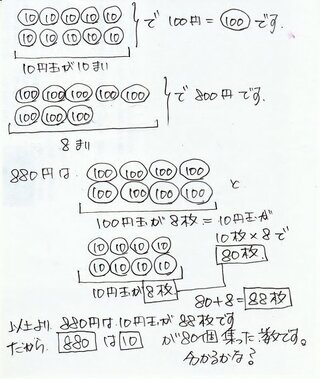 10 10 10 10 10
10 10 10 10 10
で 100円 = 100 です.
10円玉が10まい
100 100 100 100 100
100 100 100
で 800円です.
8まい
880円は
100 100 100 100
100 100 100 100
と
100円玉が8枚 = 10円玉が
10枚×8で
80枚
10 10 10 10
10 10 10 10
10円玉が8枚
80+8=88枚
以上より 880円は10円玉が88枚です
だから 880 は 10 が80個集った数です。
分かるかな?